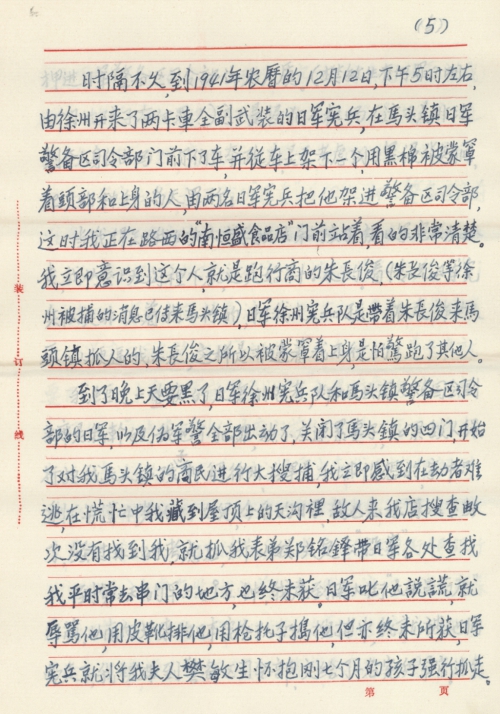 (5)
时隔不久,到1941年农曆的12月12日,下午5时左右,
由徐州开来了两卡車全副武装的日军宪兵,在馬头镇日军
警备区司令部门前下了车,并從车上架下一个,用黑棉被蒙罩
着頭部和上身的人,由两名日军宪兵把他架进警备区司令部,
这时我正在路西的"南恒盛食品店"门前站着,看的非常清楚。
我立即意识到这个人就是跑行商的朱長俊,(朱長俊等徐
州被捕的消息已传来馬头镇)日军徐州宪兵队是带着朱長俊来馬
頭镇抓人的,朱長俊之所以被蒙罩着上身,是怕驚跑了其他人。
到了晚上天要黑了,日军徐州宪兵队和馬头镇警备区司令
部的日军,以及伪军警全部出动了,关闭了馬头镇的四门,开始
了对我馬头镇的商民进行大搜捕,我立即感到在劫者难
逃,在慌忙中我藏到屋顶上的天沟裡,敌人来我店搜查数
次没有找到我,就抓我表弟郑铭鋒带日军各处查找
我平时常去串门的地方,也终未获。日军叱他説謊,就
辱罵他,用皮靴排他,用枪托子搗他,但亦终未所获,日军
宪兵就将我夫人樊敏生怀抱刚七个月的孩子强行抓走。
装
订
线
第 页